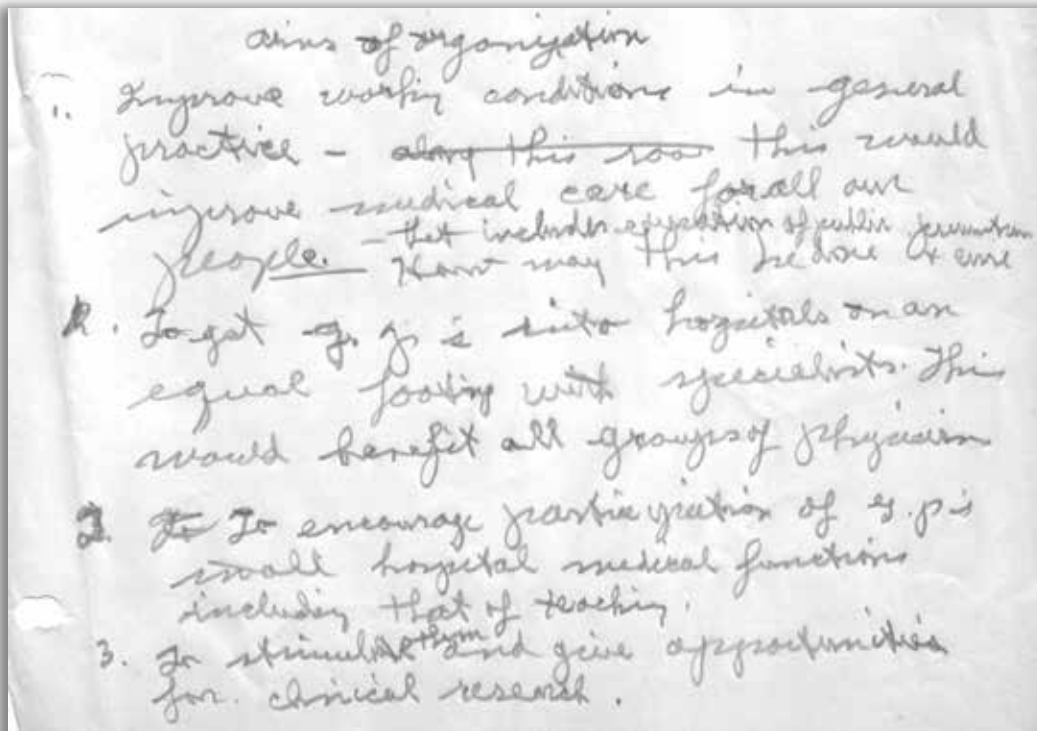 aims of organization
1. Improve working conditions in general
practice - along this this would
improve medical care for all our
people. - that includes education of public
How may this be done
2. To get g. p.'s into hospitals on an
equal footing with specialists. This
would benefit all groups of physicians
2. To To encourage participation of g.p.'s
in all hospital medical functions
including that of teaching.
3. To stimulate them and give opportunities
for clinical research.